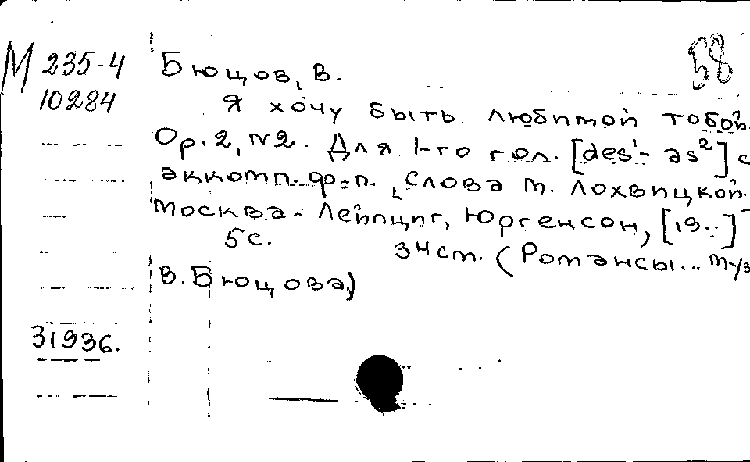 М 235-4
10284
58
Бюцов, В.
Я хочу быть любимой тобой.
Ор. 2, №2. Для 1-го гол. [des¹- as²] с
аккомп. ф-п. Слова М. Лохвицкой.
Москва - Лейпциг, Юргенсон, [19..]
5с. 34см. (Романсы... муз
В. Бюцова)
31936.